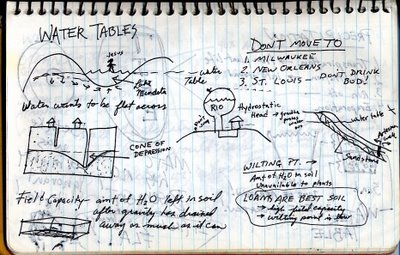 WATER TABLES
Jesus
Lake
Mendota
water
Table
Water wants to be flat across
CONE OF
DEPRESSION
Field Capacity - amt of H2O left in soil
after gravity has drained
away as much as it can
DON'T MOVE TO
1. MILWAUKEE
2. NEW ORLEANS
3. ST. LOUIS - DON'T DRINK
BUD!
RIO
Hydrostatic
Head →
water table
Sandstone
WILTING PT. →
Amt of H2O in soil
Unavailable to plants
LOAMS ARE BEST SOIL
→ high field capacity
→ wilting point is low